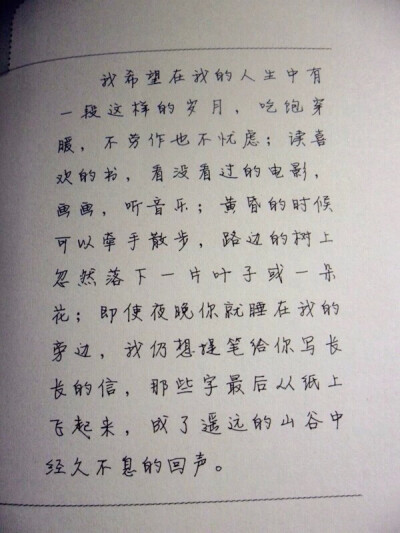 我希望在我的人生中有
一段这样的岁月，吃饱穿
暖，不劳作也不忧虑；读喜
欢的书，看没看过的电影，
画画，听音乐；黄昏的时候
可以牵手散步，路边的树上
忽然落下一片叶子或一朵
花；即使夜晚你就睡在我的
旁边，我仍想提笔给你写长
长的信，那些字最后从纸上
飞起来，成了遥远的山谷中
经久不息的回声。